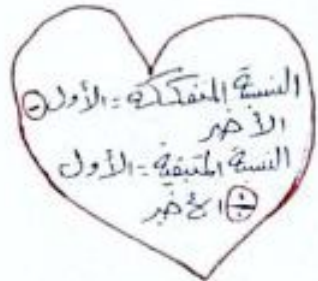 النسبة المتفككة = الأول ⊖
الأخير
النسبة المتبقية = الأول
⊕ الأخير